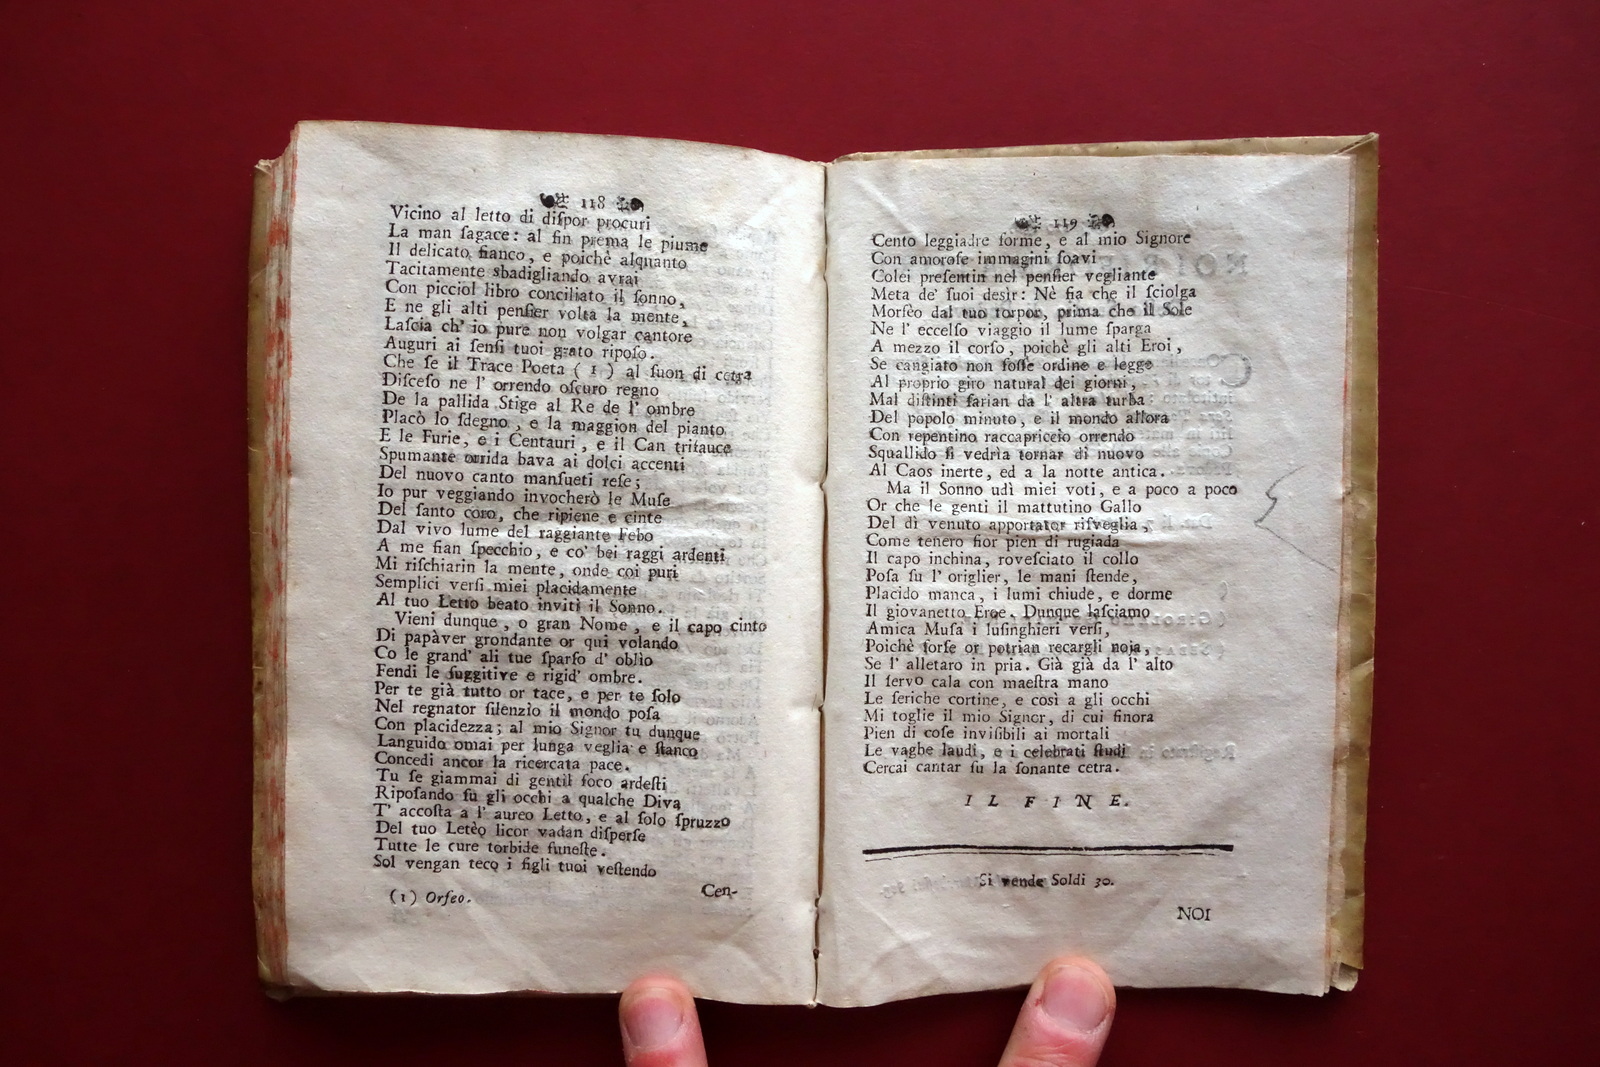 118
Vicino al letto di diſpor procuri
La man ſagace: al fin prema le piume
Il delicato fianco, e poichè alquanto
Tacitamente sbadigliando avrai
Con picciol libro conciliato il ſonno,
E ne gli alti penſier volta la mente,
Laſcia ch' io pure non volgar cantore
Auguri ai ſenſi tuoi grato ripoſo.
Che ſe il Trace Poeta (1) al ſuon di cetra
Diſceſo ne l' orrendo oſcuro regno
De la pallida Stige al Re de l' ombre
Placò lo ſdegno, e la maggion del pianto
E le Furie, e i Centauri, e il Can trifauce
Spumante orrida bava ai dolci accenti
Del nuovo canto manſueti reſe;
Io pur veggiando invocherò le Muſe
Del ſanto coro, che ripiene e cinte
Dal vivo lume del raggiante Febo
A me fian ſpecchio, e co' bei raggi ardenti
Mi riſchiarin la mente, onde coi puri
Semplici verſi miei placidamente
Al tuo Letto beato inviti il Sonno.
Vieni dunque, o gran Nome, e il capo cinto
Di papàver grondante or qui volando
Co le grand' ali tue ſparſo d' oblìo
Fendi le fuggitive e rigid' ombre.
Per te già tutto or tace, e per te ſolo
Nel regnator ſilenzìo il mondo poſa
Con placidezza; al mio Signor tu dunque
Languido omai per lunga veglia e ſtanco
Concedi ancor la ricercata pace.
Tu ſe giammai di gentil foco ardeſti
Ripoſando ſu gli occhi a qualche Diva
T' accoſta a l' aureo Letto, e al ſolo ſpruzzo
Del tuo Letèo licor vadan diſperſe
Tutte le cure torbide funeſte.
Sol vengan teco i figli tuoi veſtendo
(1) Orfeo.
Cen-
119
Cento leggiadre forme, e al mio Signore
Con amoroſe immagini ſoavi
Colei preſentin nel penſier vegliante
Meta de' ſuoi desìr: Nè fia che il ſciolga
Morfèo dal tuo torpor, prima che il Sole
Ne l' eccelſo viaggio il lume ſparga
A mezzo il corſo, poichè gli alti Eroi,
Se cangiato non foſſe ordine e legge
Al proprio giro natural dei giorni,
Mal diſtinti farian da l' altra turba
Del popolo minuto, e il mondo allora
Con repentino raccapriccio orrendo
Squallido ſi vedrìa tornar di nuovo
Al Caos inerte, ed a la notte antica.
Ma il Sonno udì miei voti, e a poco a poco
Or che le genti il mattutino Gallo
Del dì venuto apportator riſveglia,
Come tenero fior pien di rugiada
Il capo inchina, roveſciato il collo
Poſa ſu l' origlier, le mani ſtende,
Placido manca, i lumi chiude, e dorme
Il giovanetto Eroe. Dunque laſciamo
Amica Muſa i luſinghieri verſi,
Poichè forſe or potrian recargli noja,
Se l' alletaro in pria. Già già da l' alto
Il ſervo cala con maeſtra mano
Le ſeriche cortine, e così a gli occhi
Mi toglie il mio Signor, di cui finora
Pien di coſe inviſibili ai mortali
Le vaghe laudi, e i celebrati ſtudi
Cercai cantar ſu la ſonante cetra.
IL FINE.
Si vende Soldi 30.
NOI